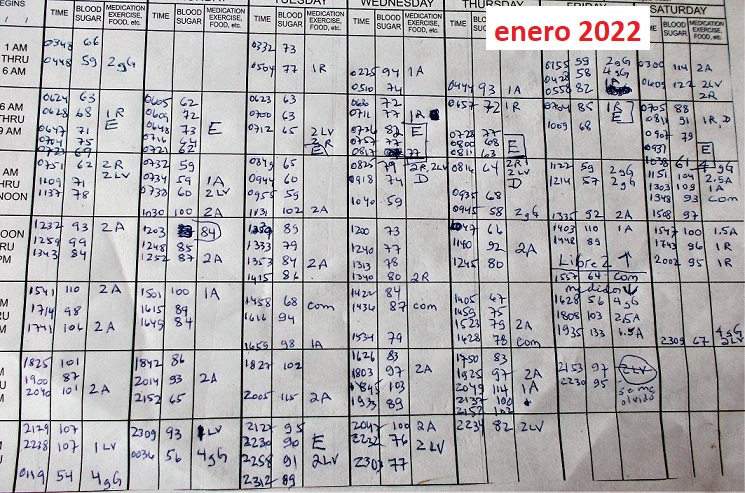 enero 2022
BEGINS
TUESDAY WEDNESDAY THURSDAY FRIDAY SATURDAY
TIME BLOOD SUGAR MEDICATION EXERCISE, FOOD, etc. TIME BLOOD SUGAR MEDICATION EXERCISE, FOOD, etc. TIME BLOOD SUGAR MEDICATION EXERCISE, FOOD, etc. TIME BLOOD SUGAR MEDICATION EXERCISE, FOOD, etc. TIME BLOOD SUGAR
1 AM THRU 6 AM
0348 66
0448 59 2gG
0332 73
0504 77 1R
0225 94 1A
0510 74
0444 93 1A
59 2gG
0428 58 4gG
0558 82
0300 114 2A
0600 122 2LV
2R
6 AM THRU 9 AM
0624 63
0628 68 1R
0647 71 E
0704 75
69
0605 62
0609 72
0648 73 E
0716
0623 63
0700 63
0712 65 2LV
2R
E
72
0711 77 1R
0736 82 E
0757 77
0817 77
0657 72 1R
0728 77
0800 68 E
0811 63
0704 85 1R
E
1009 68
0705 88
0841 91 1R, D
0907 79
0931 E
1038 61 4gG
AM THRU NOON
0751 62 2R
2LV
1109 71
1137 78
0732 59
0734 59 1A
0738 60 2LV
1030 100 2A
0819 65
0944 60
0955 59
1131 102 2A
0825 79 2R, 2LV
0918 74 D
1040 59
0814 64 2R
2LV
D
0935 68
0945 58 2gG
1122 59 2gG
1214 57 2gG
1335 92 2A
1151 104 2.5A
1303 109 1A
1348 93 com
1508 97
NOON THRU PM
1232 93 2A
1259 99
1343 84
1203 84
1248 85
1252 87 2A
89
1333 79
1353 84 2A
1415 86
1200 73
1240 77
1313 78
1340 80 2R
66
1140 92 2A
1245 80
1403 110 1A
1448 89
Libre 2 ↑
1557 64 com
medidor ↓
1547 100 1.5A
1743 96 1R
2002 95 1R
1541 110 2A
1714 98
1741 106 2A
1501 100 1A
1615 89
1649 84
1458 68 com
1616 94
1659 98 1A
1422 84
1436 87 com
1534 79
1405 67
1459 75
1523 79 2A
1628 78 com
1628 56 4gG
1808 103 2.5A
1935 133 1.5A
2309 67 4gG
2LV
1825 101
1900 87
2040 101 2A
1842 86
2014 93 2A
2152 65
1827 102
2005 115 2A
1626 83
1803 97 2A
1845 103
1933 89
1750 83
1925 97 2A
2049 114 1A
2137 100
2157 102
2153 97 2LV
2230 95 se me
olvidó
2129 107
2238 107 1LV
0119 54 4gG
2309 93 1LV
0036 56 4gG
2127 95
2230 90 E
2258 91 2LV
2312 89
2047 100 2A
2232 76 2LV
2303 77
2234 82 2LV